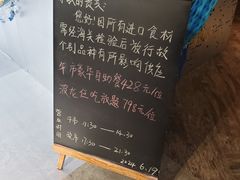 您好!因所有进口食材
需经海关检验后放行故
个别品种有所影响供应
午市豪华自助餐428元/位
波龙任吃放题798元/位
营业时间
午市 11:30—14:30
晚市 17:30—21:30
2024.6.19